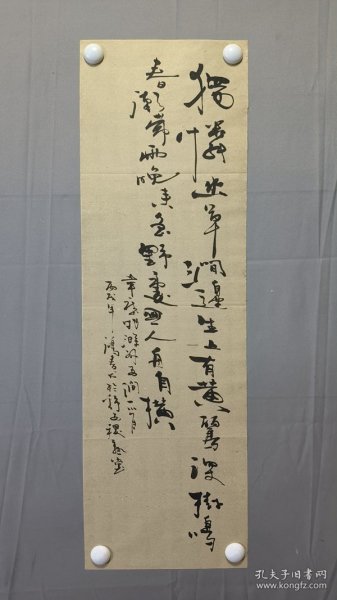 独怜幽草涧边生上有黄鹂深树鸣
春潮带雨晚来急野渡无人舟自横
韦应物滁州西涧一首
丙戌年
孔夫子旧书网